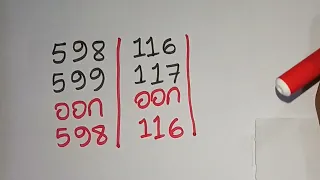 598 116
599 117
ออก ออก
598 116